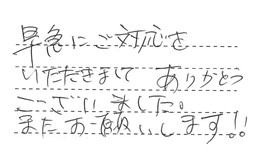 早急にご対応を
いただきまして ありがとう
ございました。
またお願いします!!